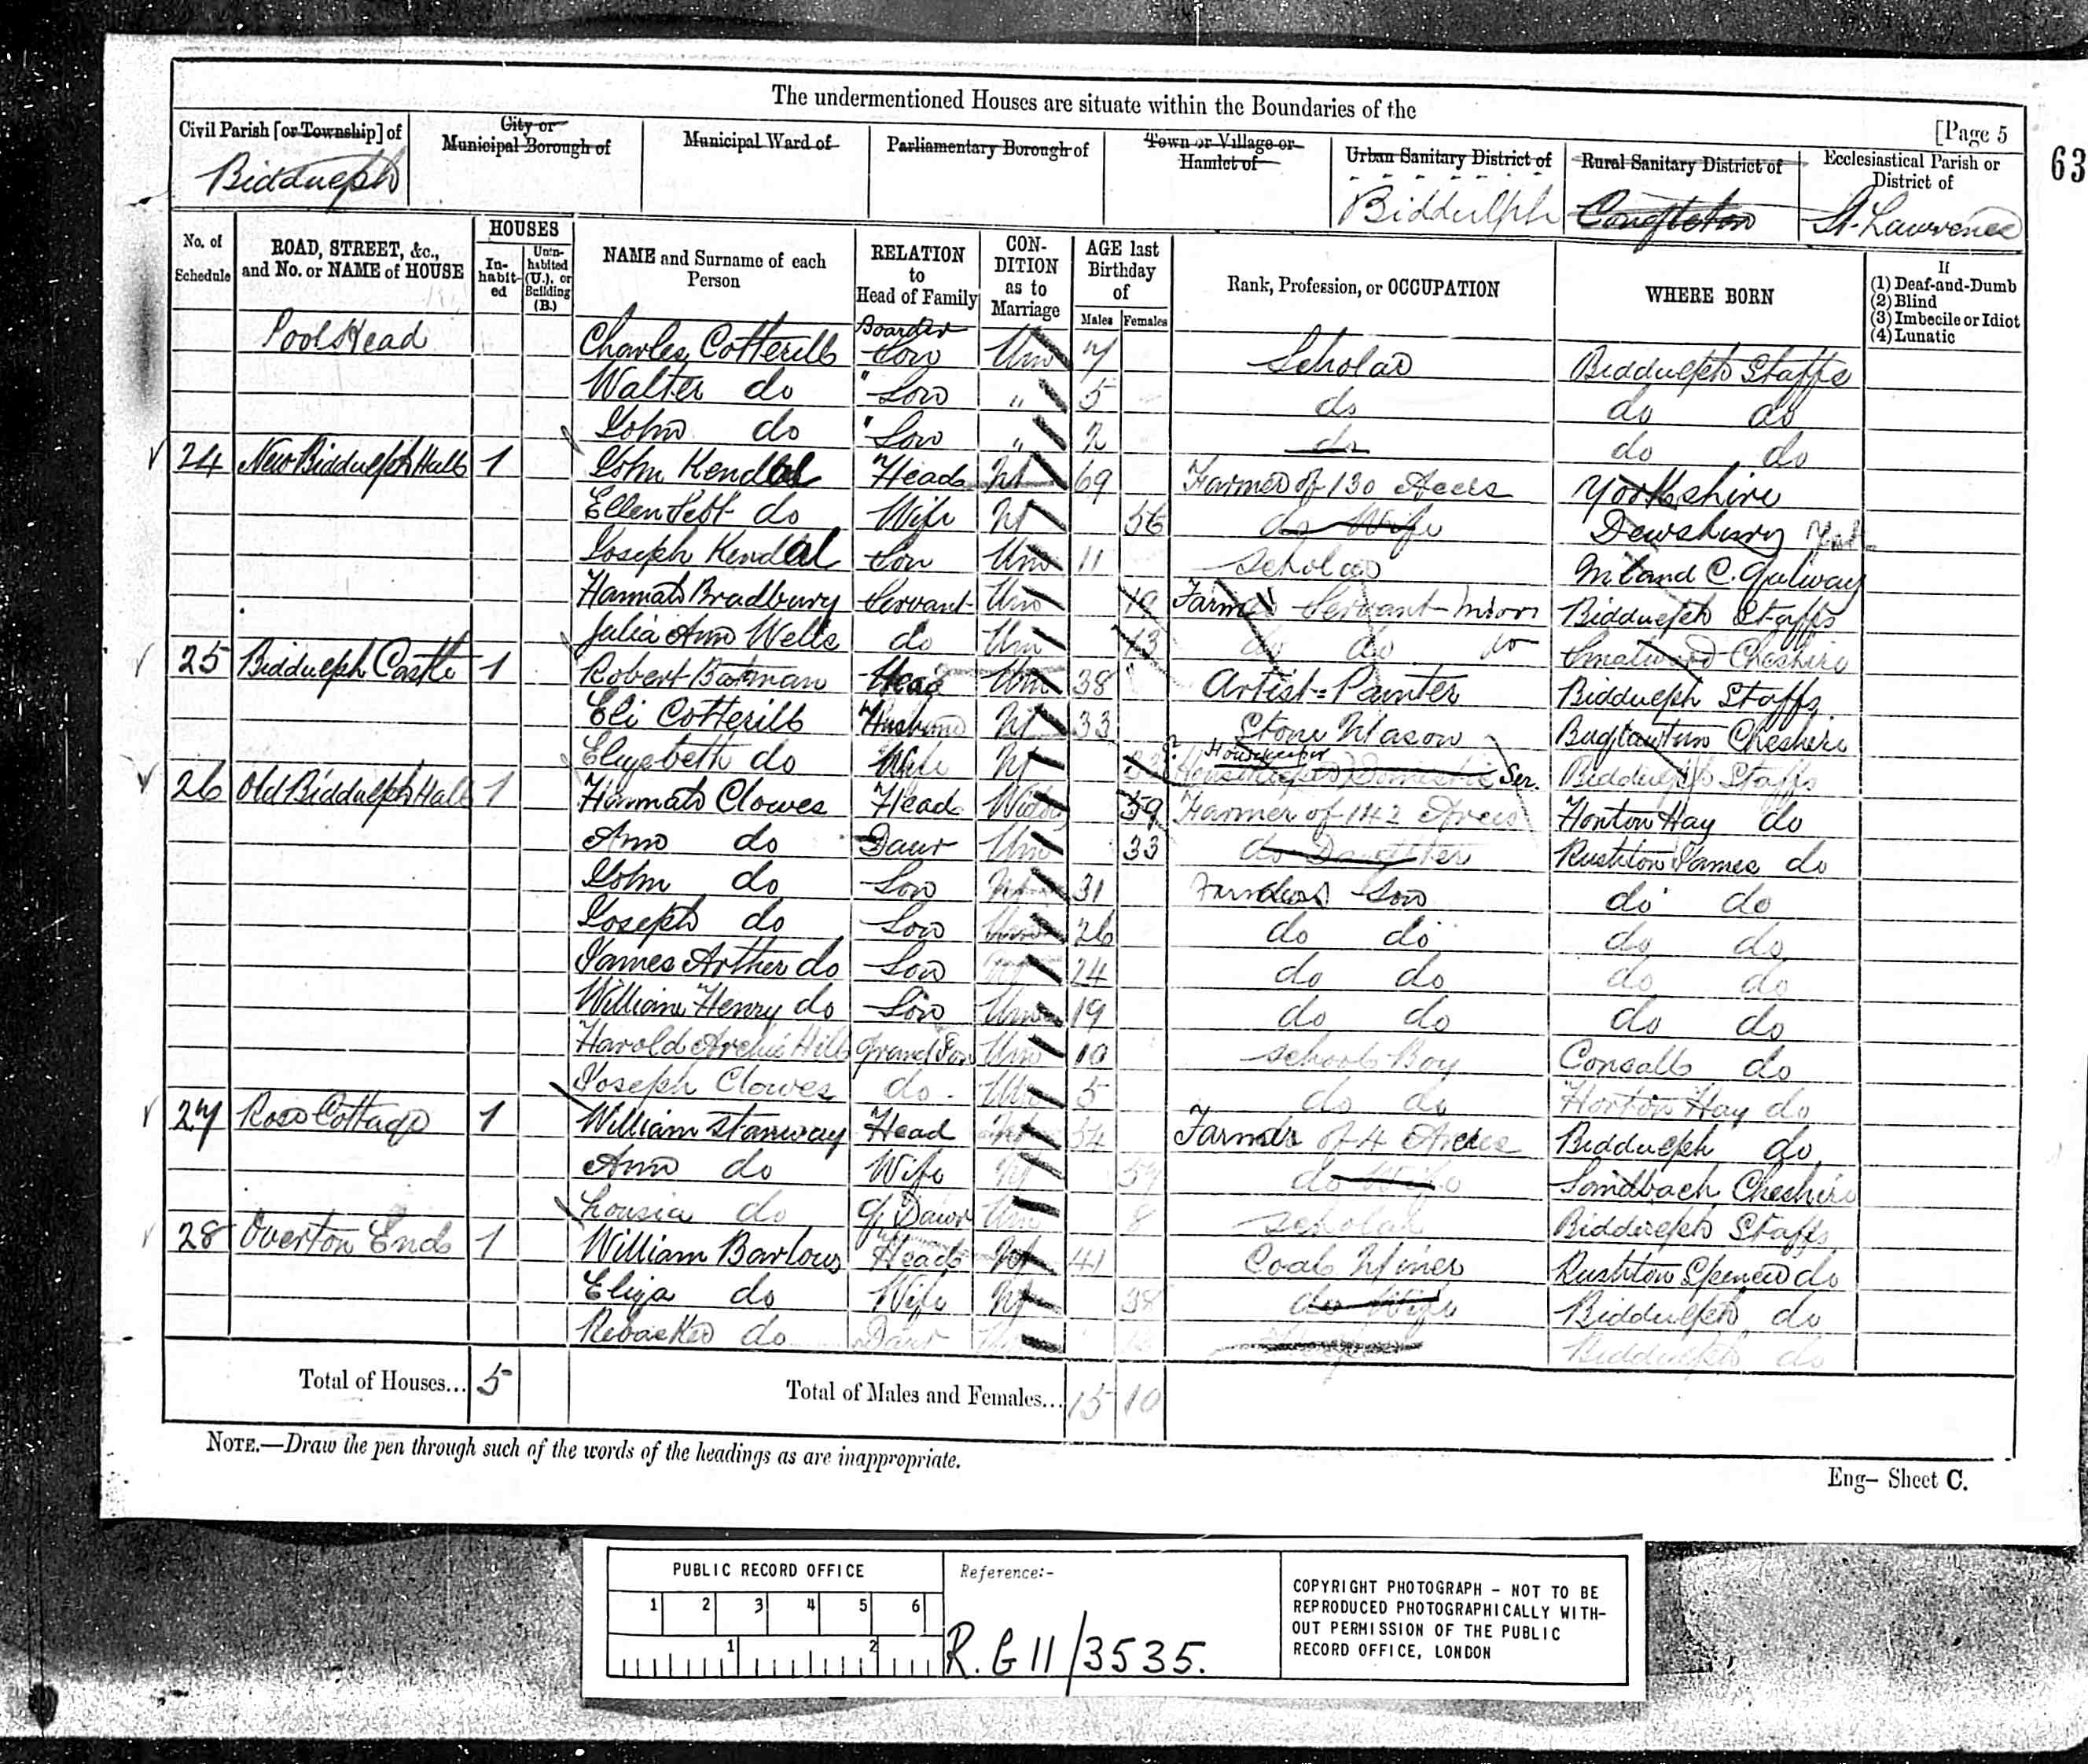 The undermentioned Houses are situate within the Boundaries of the
[Page 5
63
Civil Parish [or Township] of
City or Municipal Borough of
Municipal Ward of
Parliamentary Borough of
Town or Village or Hamlet of
Urban Sanitary District of
Rural Sanitary District of
Ecclesiastical Parish or District of
Biddulph
Biddulph
Congleton
St. Lawrence
No. of Schedule
ROAD, STREET, &c., and No. or NAME of HOUSE
HOUSES
In-habit-ed
Unin-habited (U.), or Building (B.)
NAME and Surname of each Person
RELATION to Head of Family
CON-DITION as to Marriage
AGE last Birthday of
Males Females
Rank, Profession, or OCCUPATION
WHERE BORN
If
(1) Deaf-and-Dumb
(2) Blind
(3) Imbecile or Idiot
(4) Lunatic
Pools Head Charles Cotterill Boarder Son Um 7 Scholar Biddulph Staffs
Walter do " Son " 5 do do do
John do " Son " 2 do do do
24 New Biddulph Hall 1 John Kendal Head M 69 Farmer of 130 Acres Yorkshire
Ellen do Wife M 56 do Wife Dewsbury
Joseph Kendal Son Um 11 Scholar C. Galway
Hannah Bradbury Servant Um 19 Farm Servant Indoors Biddulph Staffs
Julia Ann Wells do Um 13 do do do Smallwood Cheshire
25 Biddulph Castle 1 Robert Bateman Head Um 38 Artist = Painter Biddulph Staffs
Eli Cotterill Husband M 33 Stone Mason Buglawton Cheshire
Elizabeth do Wife M 33 Housekeeper Housekeeper Domestic Ser. Biddulph Staffs
26 Old Biddulph Hall 1 Hannah Clowes Head Widow 59 Farmer of 142 Acres Horton Hay do
Ann do Daur Um 33 do Daughter Rushton James do
John do Son 31 Farmers Son do do
Joseph do Son Um 26 do do do do
James Arther do Son 24 do do do do
William Henry do Son Um 19 do do do do
Harold Archie Hill Grand Son Um 10 School Boy Consall do
Joseph Clowes do Um 5 do do Horton Hay do
27 Rose Cottage 1 William Stanway Head 54 Farmer of 4 Acres Biddulph do
Ann do Wife M 57 do Wife Sandbach Cheshire
Lousia do G. Daur Um 8 Scholar Biddulph Staffs
28 Overton End 1 William Barlow Head M 41 Coal Miner Rushton Spencer do
Eliza do Wife M 38 do Wife Biddulph do
Rebacker do Daur Biddulph do
Total of Houses... 5
Total of Males and Females... 15 10
NOTE.—Draw the pen through such of the words of the headings as are inappropriate.
Eng- Sheet C.
PUBLIC RECORD OFFICE
1 2 3 4 5 6
1 2
Reference:-
R.G 11/3535.
COPYRIGHT PHOTOGRAPH - NOT TO BE
REPRODUCED PHOTOGRAPHICALLY WITH-
OUT PERMISSION OF THE PUBLIC
RECORD OFFICE, LONDON